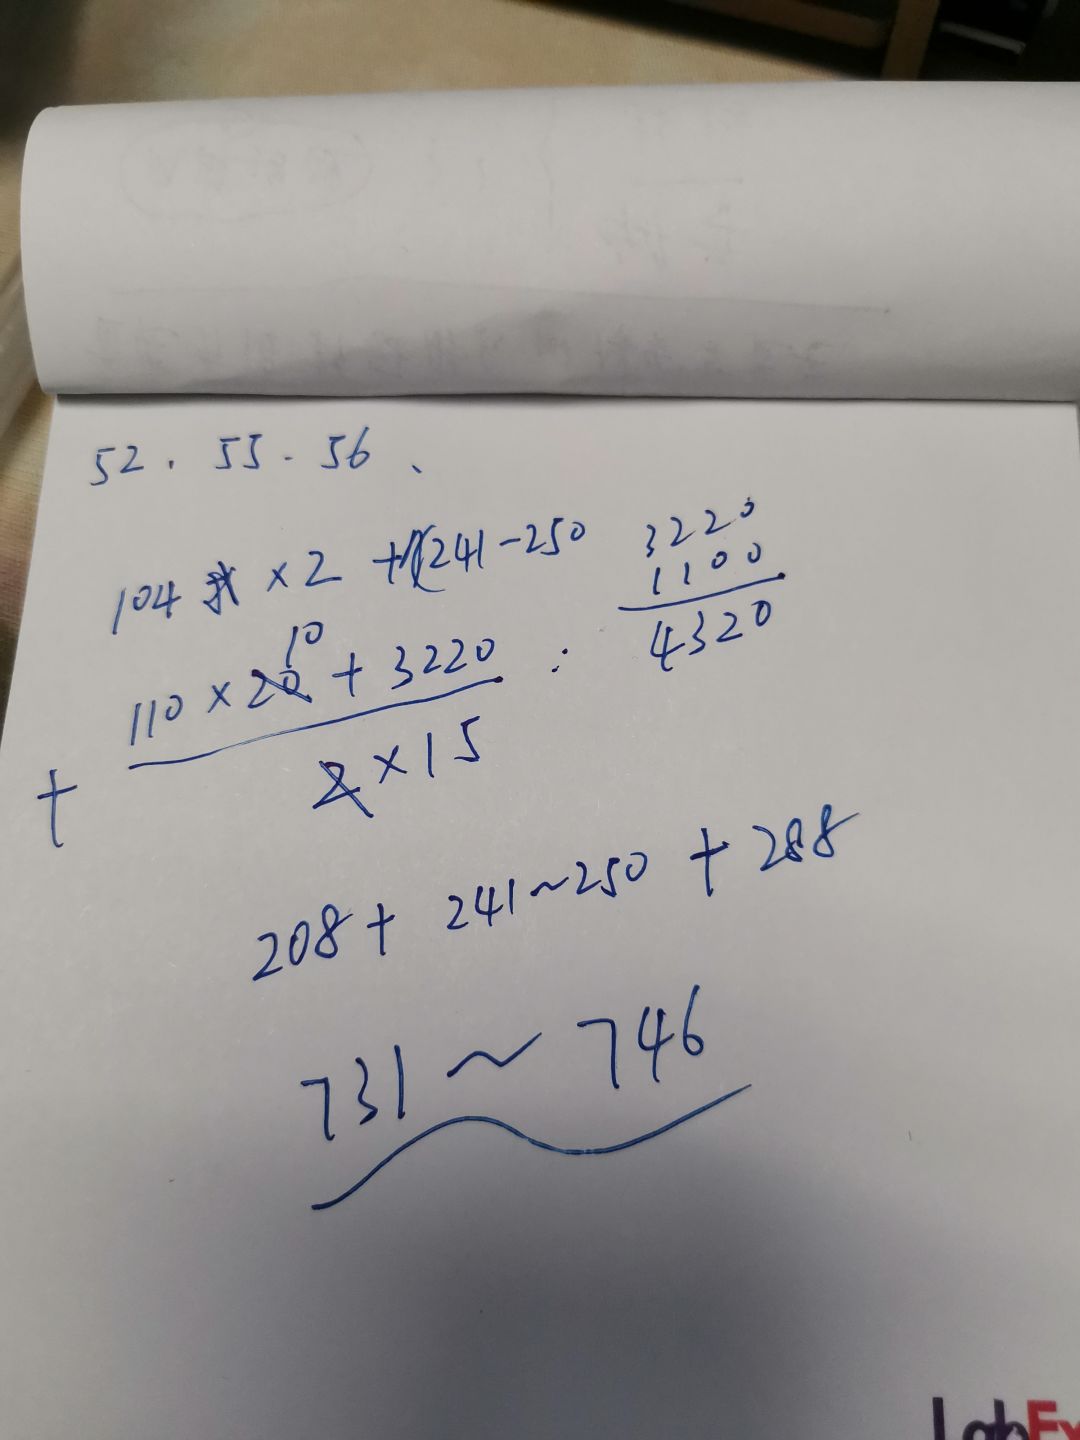 52. 55. 56、
104 × 2 + (241-250
3220
1100
4320
10
110 × 20 + 3220
+
2 × 15
208 + 241~250 + 288
731 ~ 746
LabEx